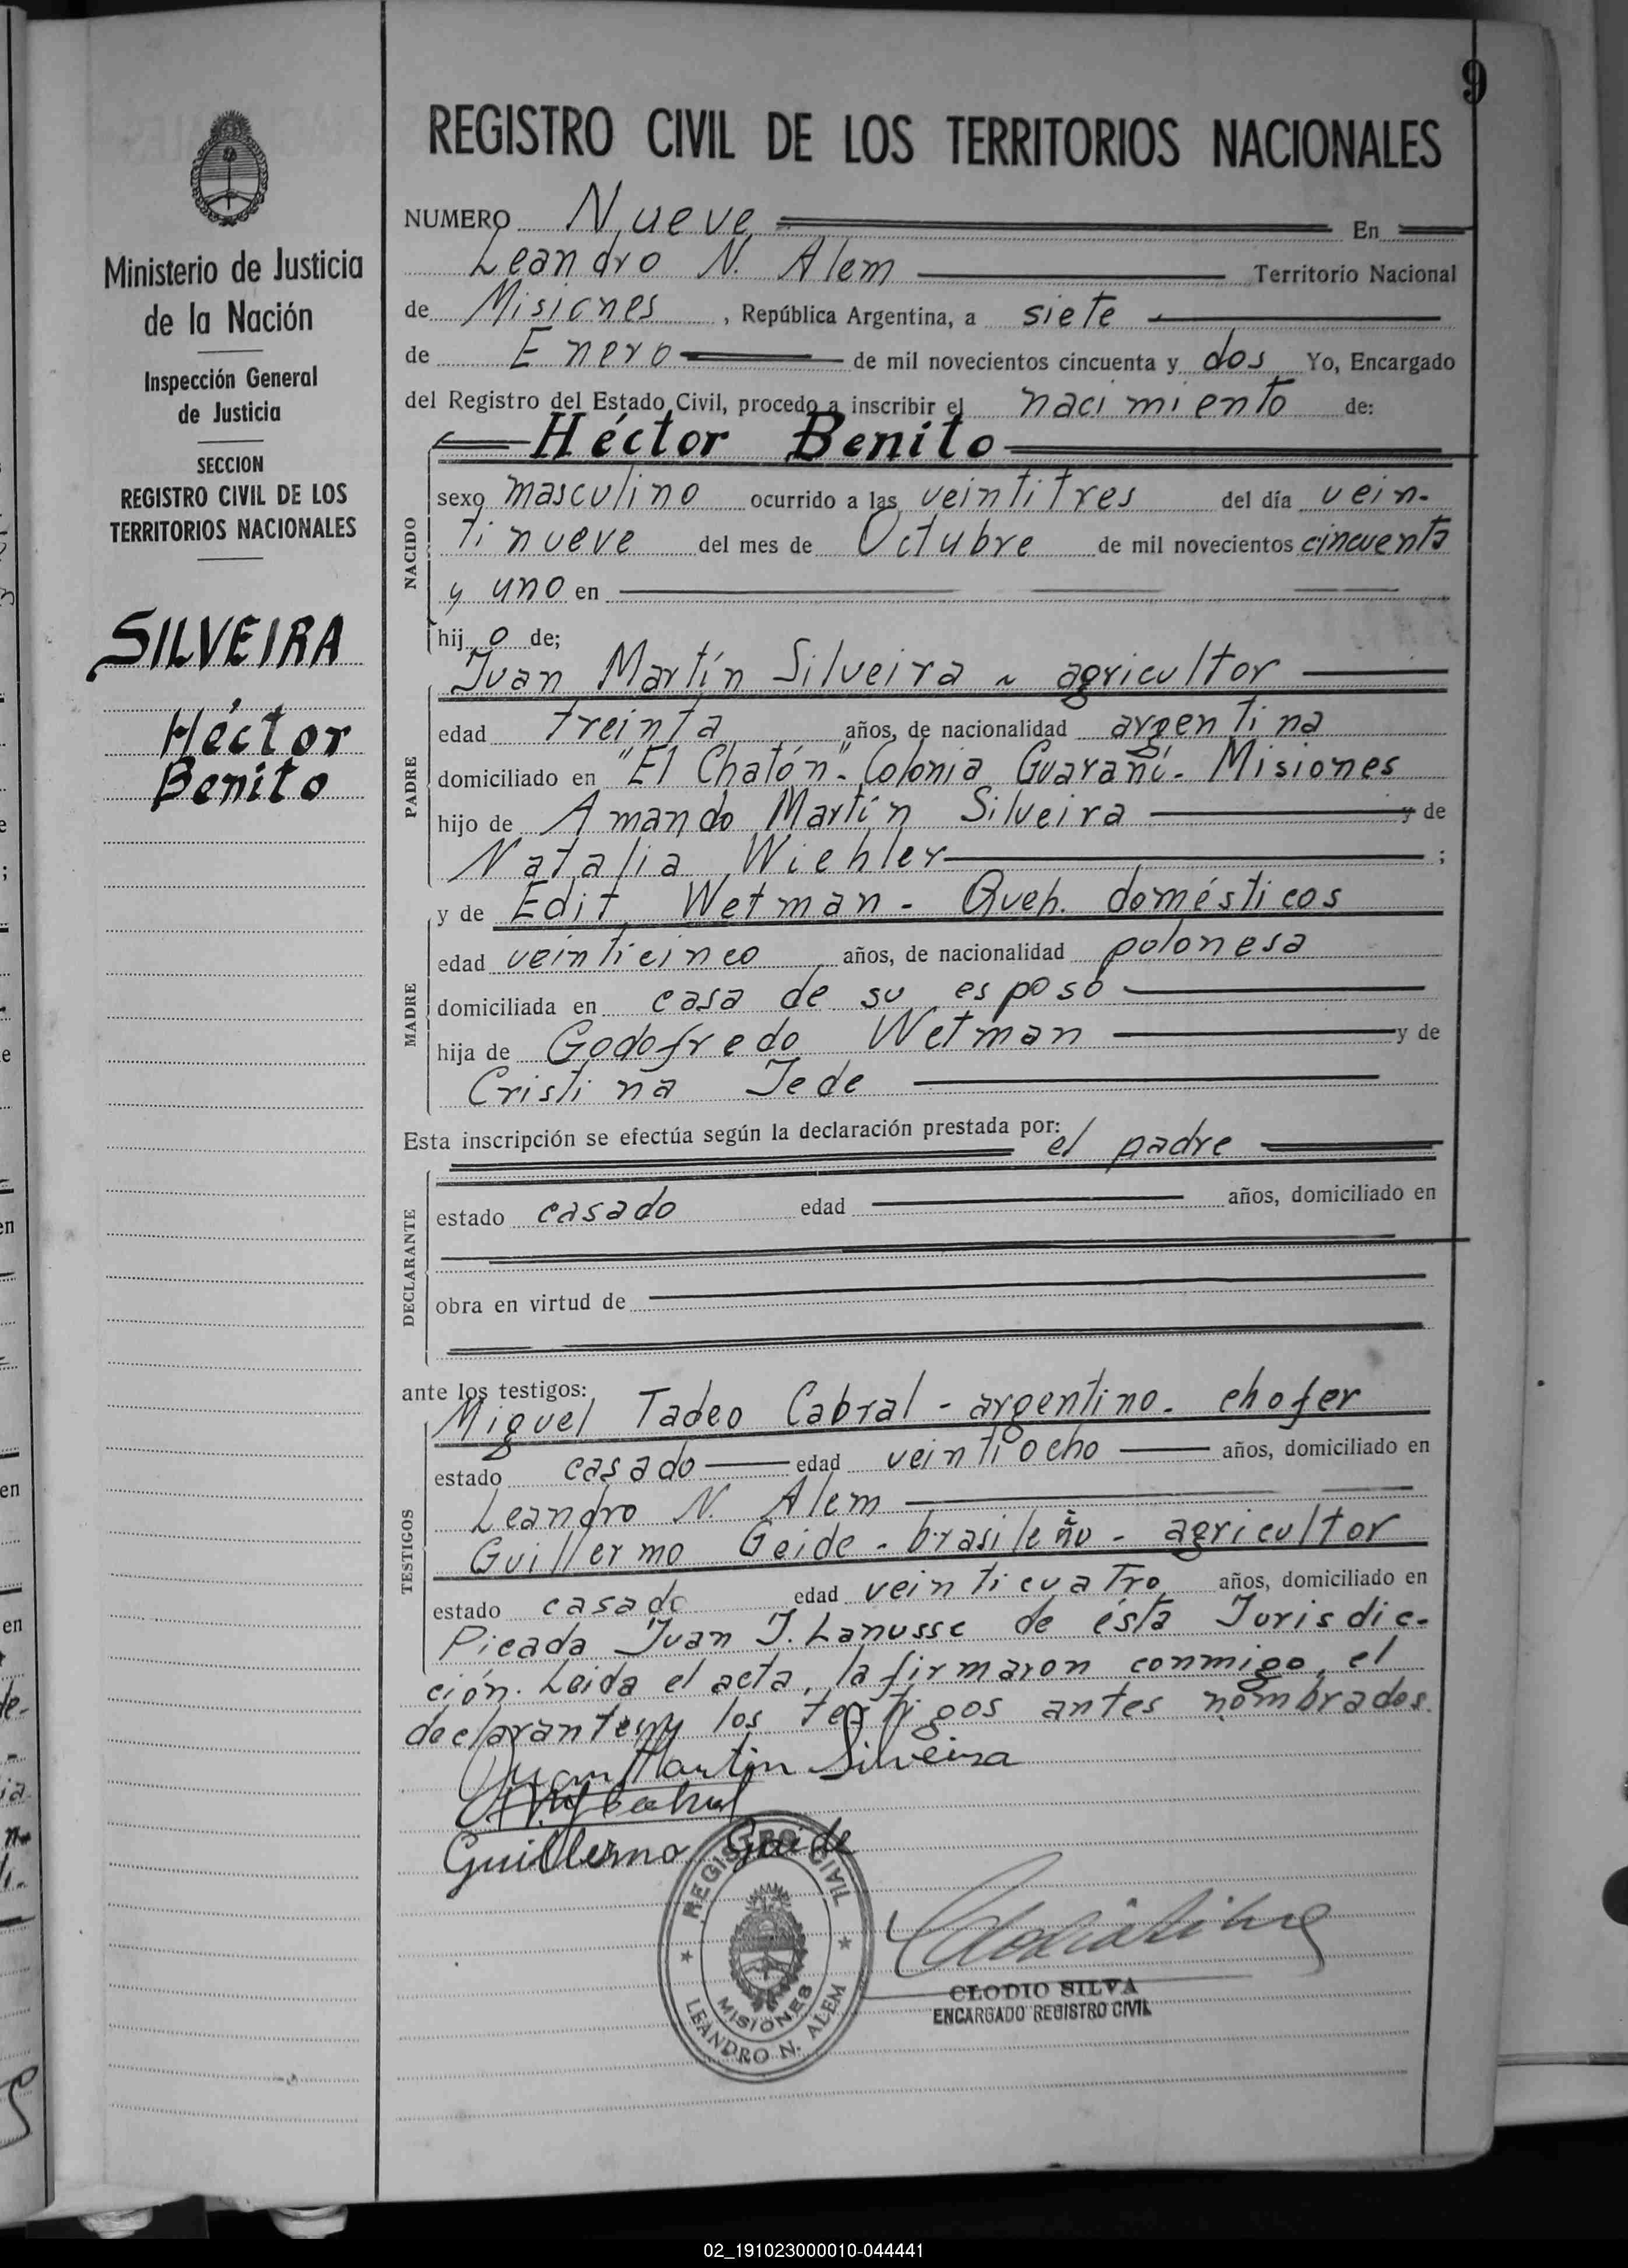 9
Ministerio de Justicia
de la Nación
Inspección General
de Justicia
SECCION
REGISTRO CIVIL DE LOS
TERRITORIOS NACIONALES
SILVEIRA
Héctor
Benito
REGISTRO CIVIL DE LOS TERRITORIOS NACIONALES
NUMERO Nueve En
Leandro N. Alem Territorio Nacional
de Misiones, República Argentina, a siete
de Enero de mil novecientos cincuenta y dos Yo, Encargado
del Registro del Estado Civil, procedo a inscribir el nacimiento de:
Héctor Benito
NACIDO
sexo masculino ocurrido a las veintitres del día vein-
tinueve del mes de Octubre de mil novecientos cincuenta
y uno en
hijo de;
Juan Martín Silveira ~ agricultor
PADRE
edad treinta años, de nacionalidad argentina
domiciliado en "El Chatón"- Colonia Guaraní- Misiones
hijo de Amando Martín Silveira y de
Natalia Wiehler;
y de Edit Wetman - Queh. domésticos
MADRE
edad veinticinco años, de nacionalidad polonesa
domiciliada en casa de su esposo
hija de Godofredo Wetman y de
Cristina Jede
Esta inscripción se efectúa según la declaración prestada por: el padre
DECLARANTE
estado casado edad años, domiciliado en
obra en virtud de
ante los testigos:
Miguel Tadeo Cabral - argentino - chofer
TESTIGOS
estado casado edad veintiocho años, domiciliado en
Leandro N. Alem
Guillermo Geide - brasileño - agricultor
estado casado edad veinticuatro años, domiciliado en
Picada Juan J. Lanusse de ésta Jurisdic-
ción. Leida el acta, la firmaron conmigo, el
declarante y los testigos antes nombrados.
Juan Martin Silveira
Guillermo Gaide
REGISTRO CIVIL
MISIONES
LEANDRO N. ALEM
CLODIO SILVA
ENCARGADO REGISTRO CIVIL
02_191023000010-044441